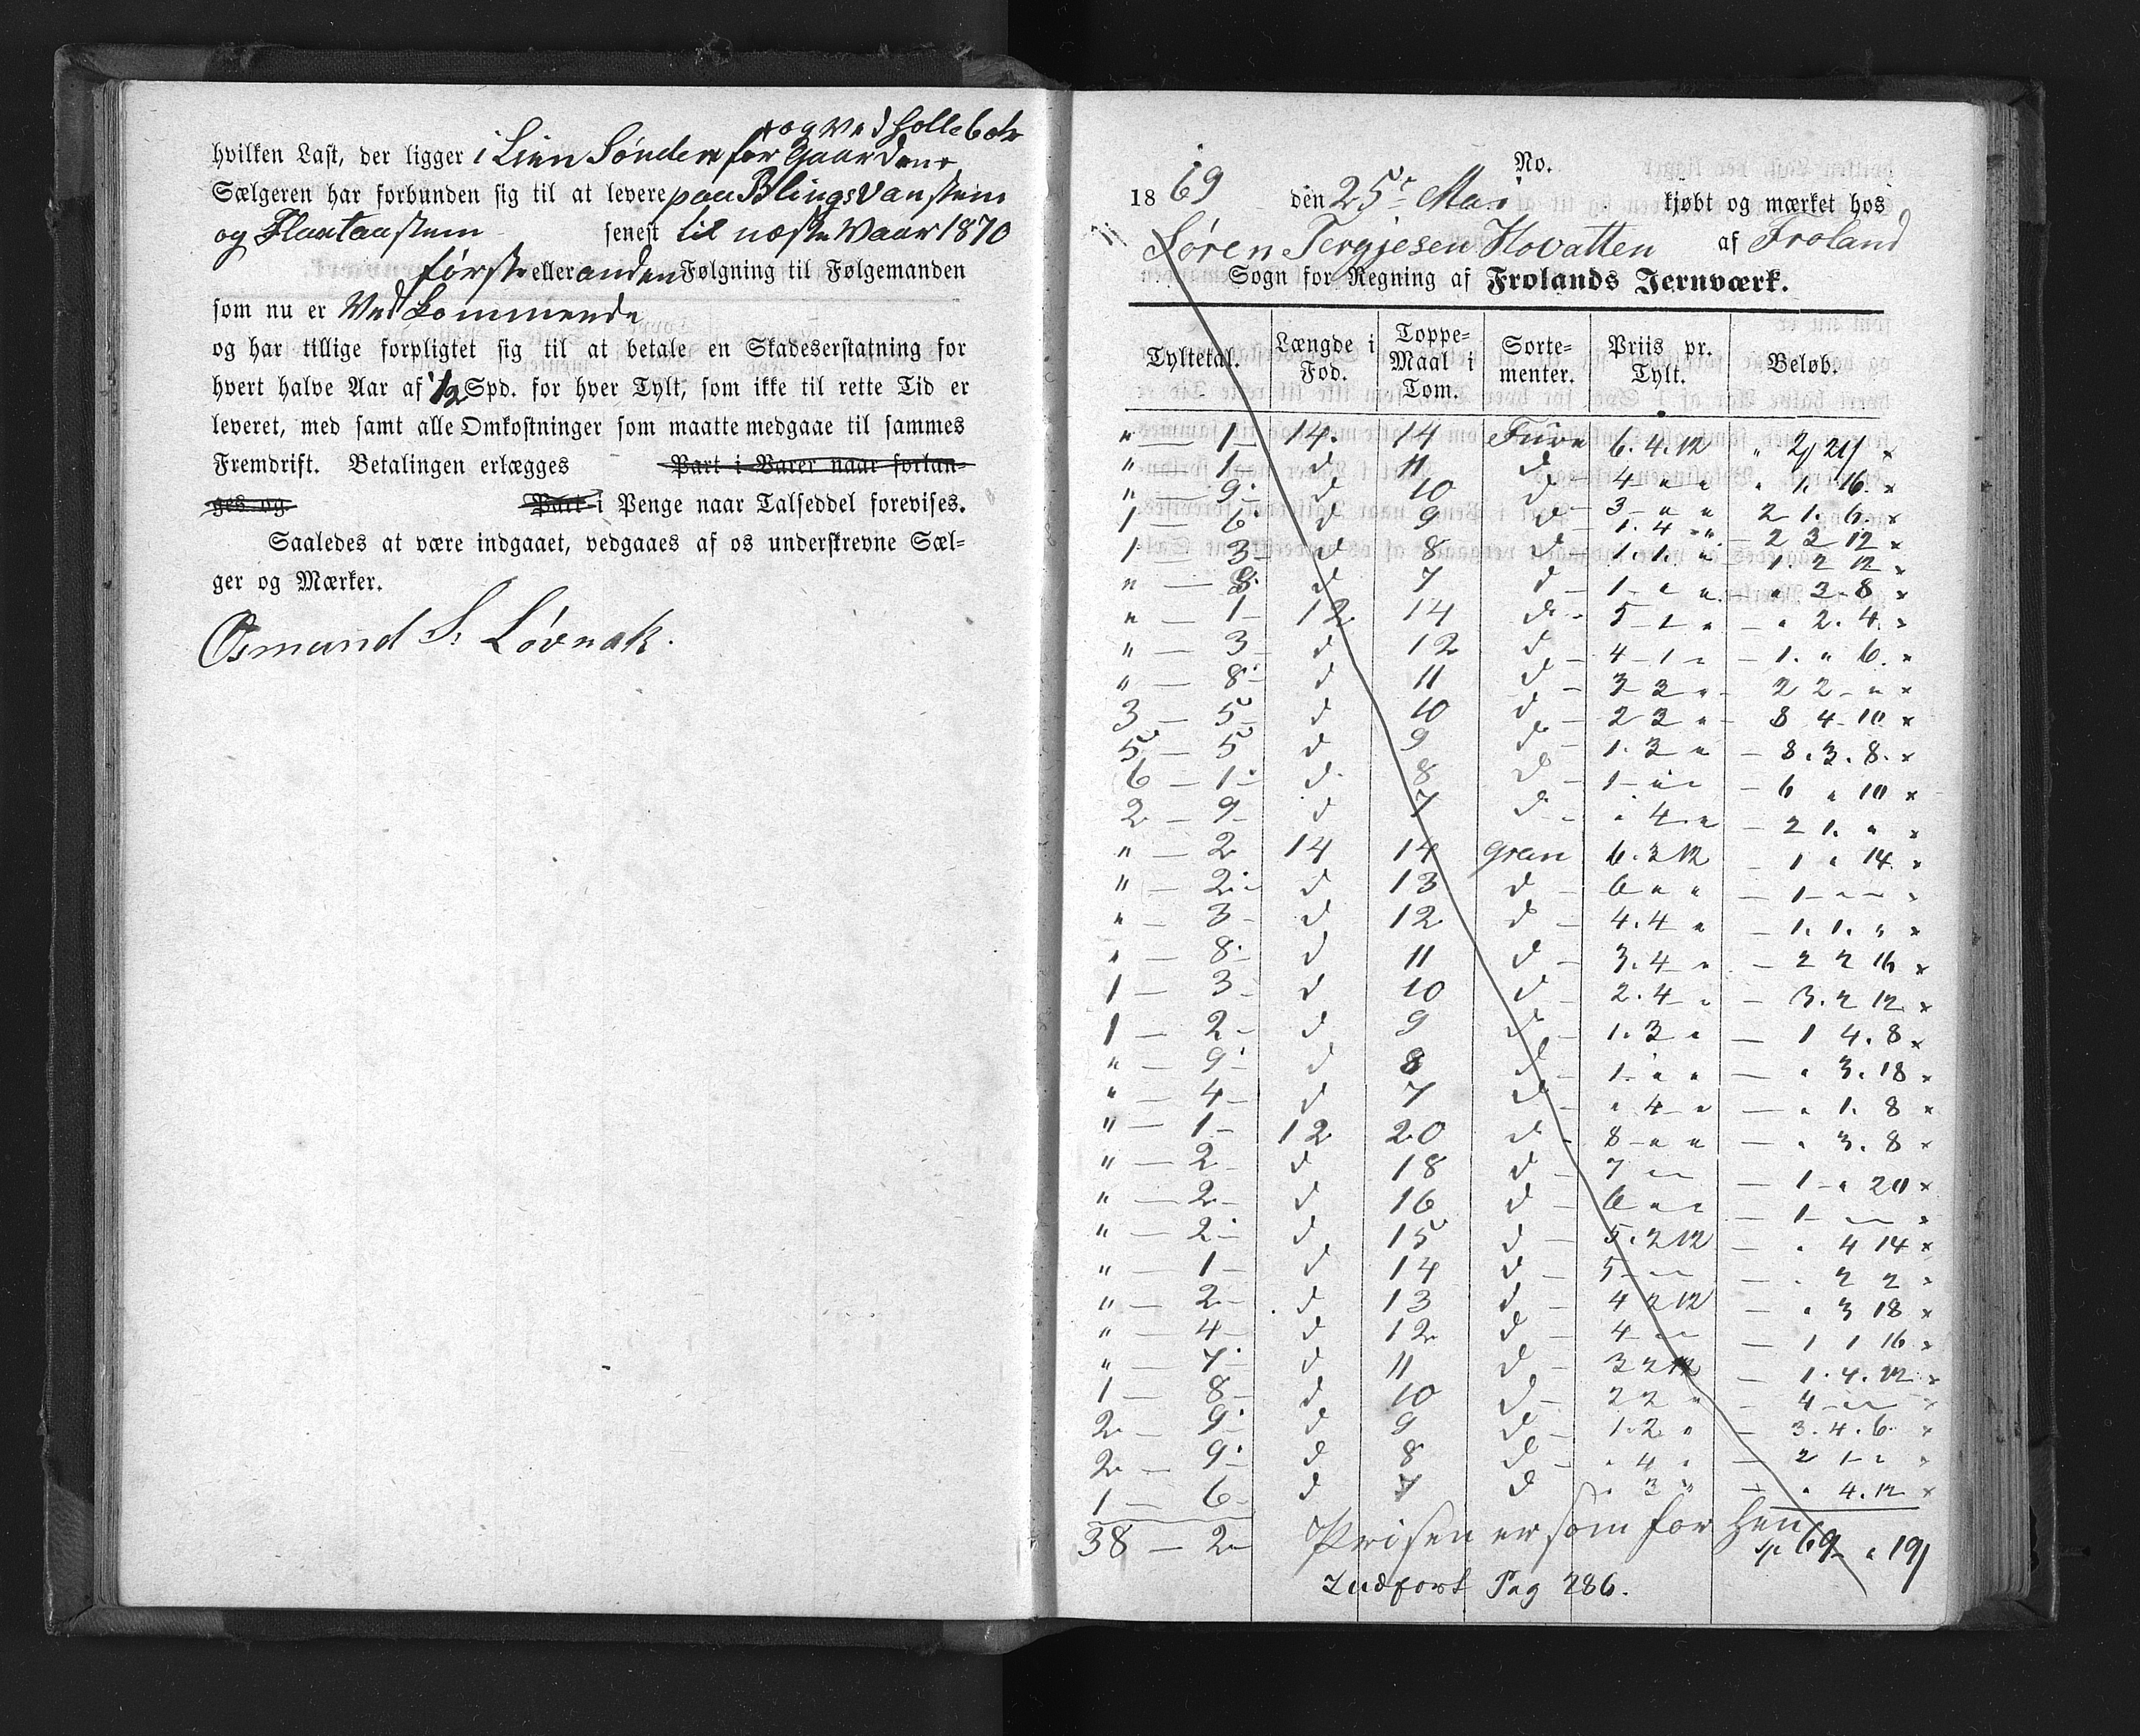 og ved Hollebek
hvilken Last, der ligger i Lien Sønden for Gaarden
Sælgeren har forbunden sig til at levere paa Blingsvanstem
og Flaataastem senest til næste Vaar 1870
første eller anden Følgning til Følgemanden
som nu er Ved Kommende
og har tillige forpligtet sig til at betale en Skadeserstatning for
hvert halve Aar af 1/2 Spd. for hver Tylt, som ikke til rette Tid er
leveret, med samt alle Omkostninger som maatte medgaae til sammes
Fremdrift. Betalingen erlægges Part i Varer naar forlan-
ges og Part i Penge naar Talseddel forevises.
Saaledes at være indgaaet, vedgaaes af os underskrevne Sæl-
ger og Mærker.
Osmund S. Løvnak.
No.
1869 den 25de Mai kjøbt og mærket hos
Søren Tergjesen Hovatten af Froland
Sogn for Regning af Frolands Jernværk.
Tyltetal. Længde i Fod. Toppe-Maal i Tom. Sorte-menter. Priis pr. Tylt. Beløb.
" — 1 — 14. 14 Furu 6. 4. 12 " 2 21 ×
" 1 — d 11 d 4 " " " 1. 16. ×
" — 9 d 10 d 3 — " " 2 1. 6. ×
1 — 6 d 9 d 1. 4 " — 2 3 12 ×
1 — 3 — d 8 d 1. 1. " 1 2 12 ×
" — 8 d 7 d 1 — " " " 3 — 8 ×
" — 1 — 12 14 d 5 — 1 — " — " 2. 4. ×
" — 3 — d 12 d 4 — 1 " — 1. " 6. ×
" — 8 — d 11 d — 3 — 3 " — 2 2 — " ×
3 — 5 — d 10 d — 2 2 " — 8 4 — 10 ×
5 — 5 d 9 d — 1. 3 " — 8. 3. 8. ×
6 — 1 — d 8 d — 1 — " " — 6 " 10 ×
2 — 9 — d 7 d — " 4 — " — 2 1. " ×
" — 2 14 14 gran 6. 3 12 — 1 " 14 ×
" — 2 — d 13 d — 6 " " — 1 — — ×
" — 3 — d 12 d — 4. 4 " — 1. 1. " ×
" — 8 — d 11 d — 3. 4 — " — 2 2 16 ×
1 — 3 — d 10 d — 2. 4 — " — 3. 2 12 ×
1 — 2 — d 9 d — 1. 3 " — 1 4. 8 ×
" — 9 d 8 d — 1. " " — " 3. 18 ×
" — 4 — d 7 d — " 4 — " — " 1. 8 ×
" — 1 — 12 20 d 8 — " " — " 3. 8 ×
" — 2 — d 18 d — 7 — — 1 — " 20 ×
" — 2 — d 16 d — 6 " " — 1 — — ×
" — 2 — d 15 d — 5. 2 12 — " 4 14 ×
" — 1 — d 14 d — 5 — — — " 2 2 ×
" — 2 — d 13 d — 4 2 12 — " 3 18 ×
" — 4 — d 12 d — 4 — — — 1 1 16 ×
" — 7 — d 11 d — 3 2 12 — 1. 4. 12 ×
1 — 8 — d 10 d — 2 2 " — 4 — — ×
2 — 9 — d 9 d — 1. 2 " — 3. 4. 6 ×
2 — 9 — d 8 d — " 4 " — 2 1 — " ×
1 — 6 — d 7 d " 3 " — " 4. 12 ×
38 — 2 — Prisen er som for hen Sp 69 " 19
Indført Pag 286.